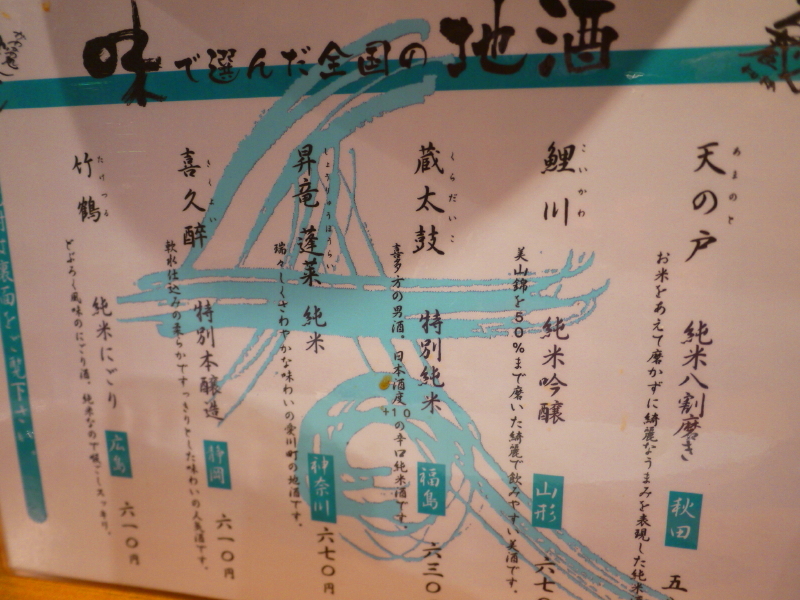 味で選んだ全国の地酒
あまのと
天の戸 純米八割磨き 秋田 五
お米をあえて磨かずに綺麗なうまみを表現した純米酒
こいかわ
鯉川 純米吟醸 山形 六七
美山錦を50%まで磨いた綺麗で飲みやすい美酒です。
くらだいこ
蔵太鼓 特別純米 福島 六三〇
喜多方の男酒。日本酒度+10の辛口純米酒です。
しょうりゅうほうらい
昇竜蓬莱 純米 神奈川 六七〇円
瑞々しくさわやかな味わいの愛川町の地酒です。
きくよい
喜久酔 特別本醸造 静岡 六一〇円
軟水仕込みの柔らかですっきりとした味わいの人気酒です。
たけつる
竹鶴 純米にごり 広島 六一〇円
どぶろく風味のにごり酒。純米なので喉ごしスッキリ。
裏面をご覧下さい。